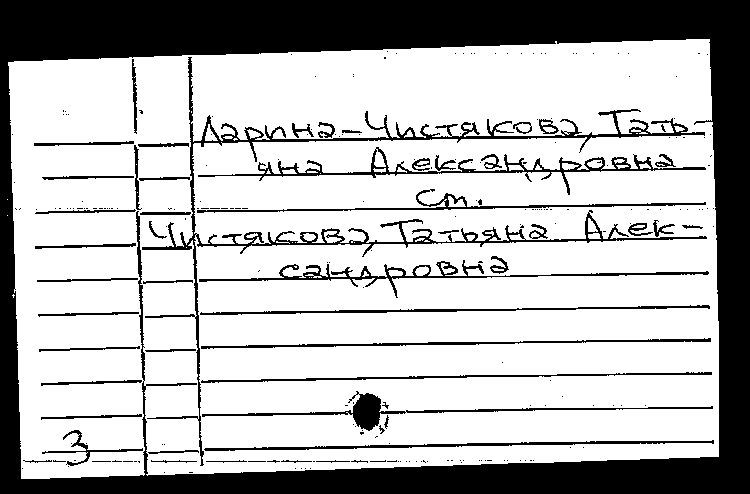 Ларина-Чистякова, Тать-
яна Александровна
см.
Чистякова, Татьяна Алек-
сандровна
3